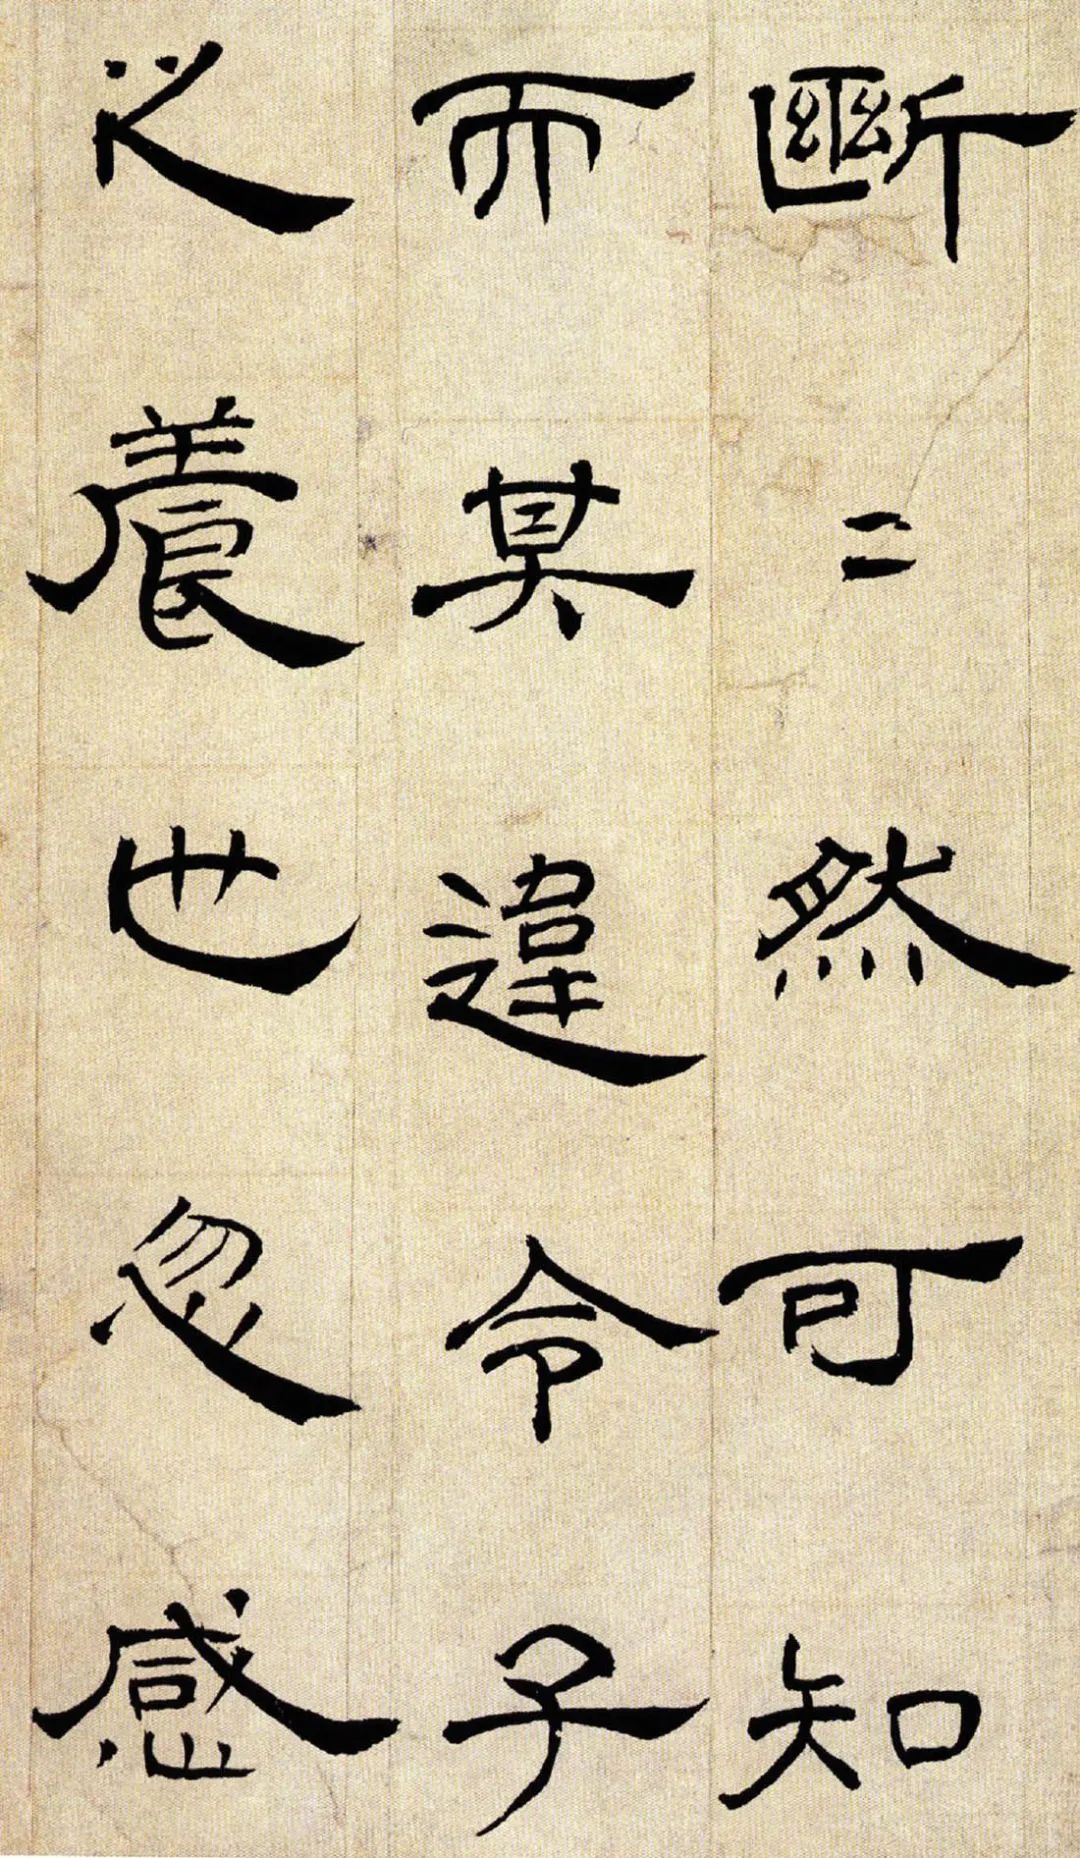 斷二然可知
而其違令子
之養也忽感